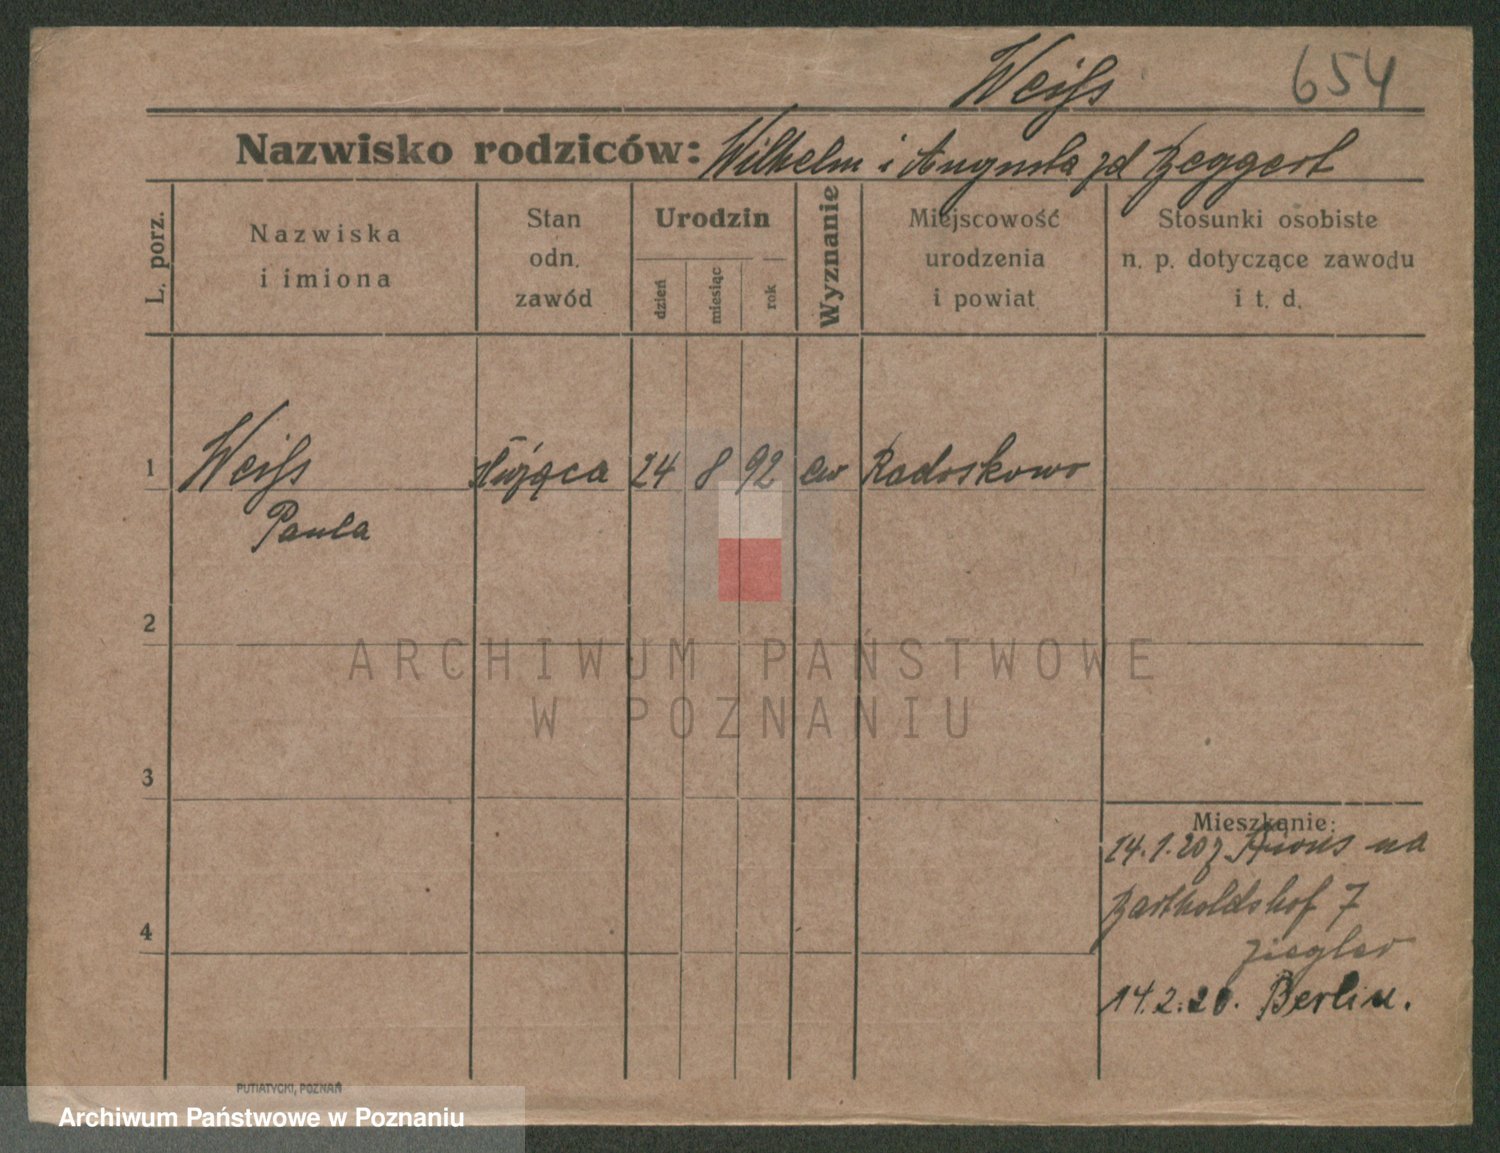 Weiſs 654
Nazwisko rodziców: Wilhelm i Augusta zd Beggerl
L. porz.
Nazwiska
i imiona
Stan
odn.
zawód
Urodzin
dzień
miesiąc
rok
Wyznanie
Miejscowość
urodzenia
i powiat
Stosunki osobiste
n. p. dotyczące zawodu
i t. d.
1 Weiſs służąca 24 8 92 ew Radoskowo
Paula
2
ARCHIWUM PAŃSTWOWE
W POZNANIU
3
Mieszkanie:
14.1.20 z na
Bartholdshof 7
4
Ziegler
14.2.20. Berlin.
PUTIATYCKI, POZNAŃ
Archiwum Państwowe w Poznaniu